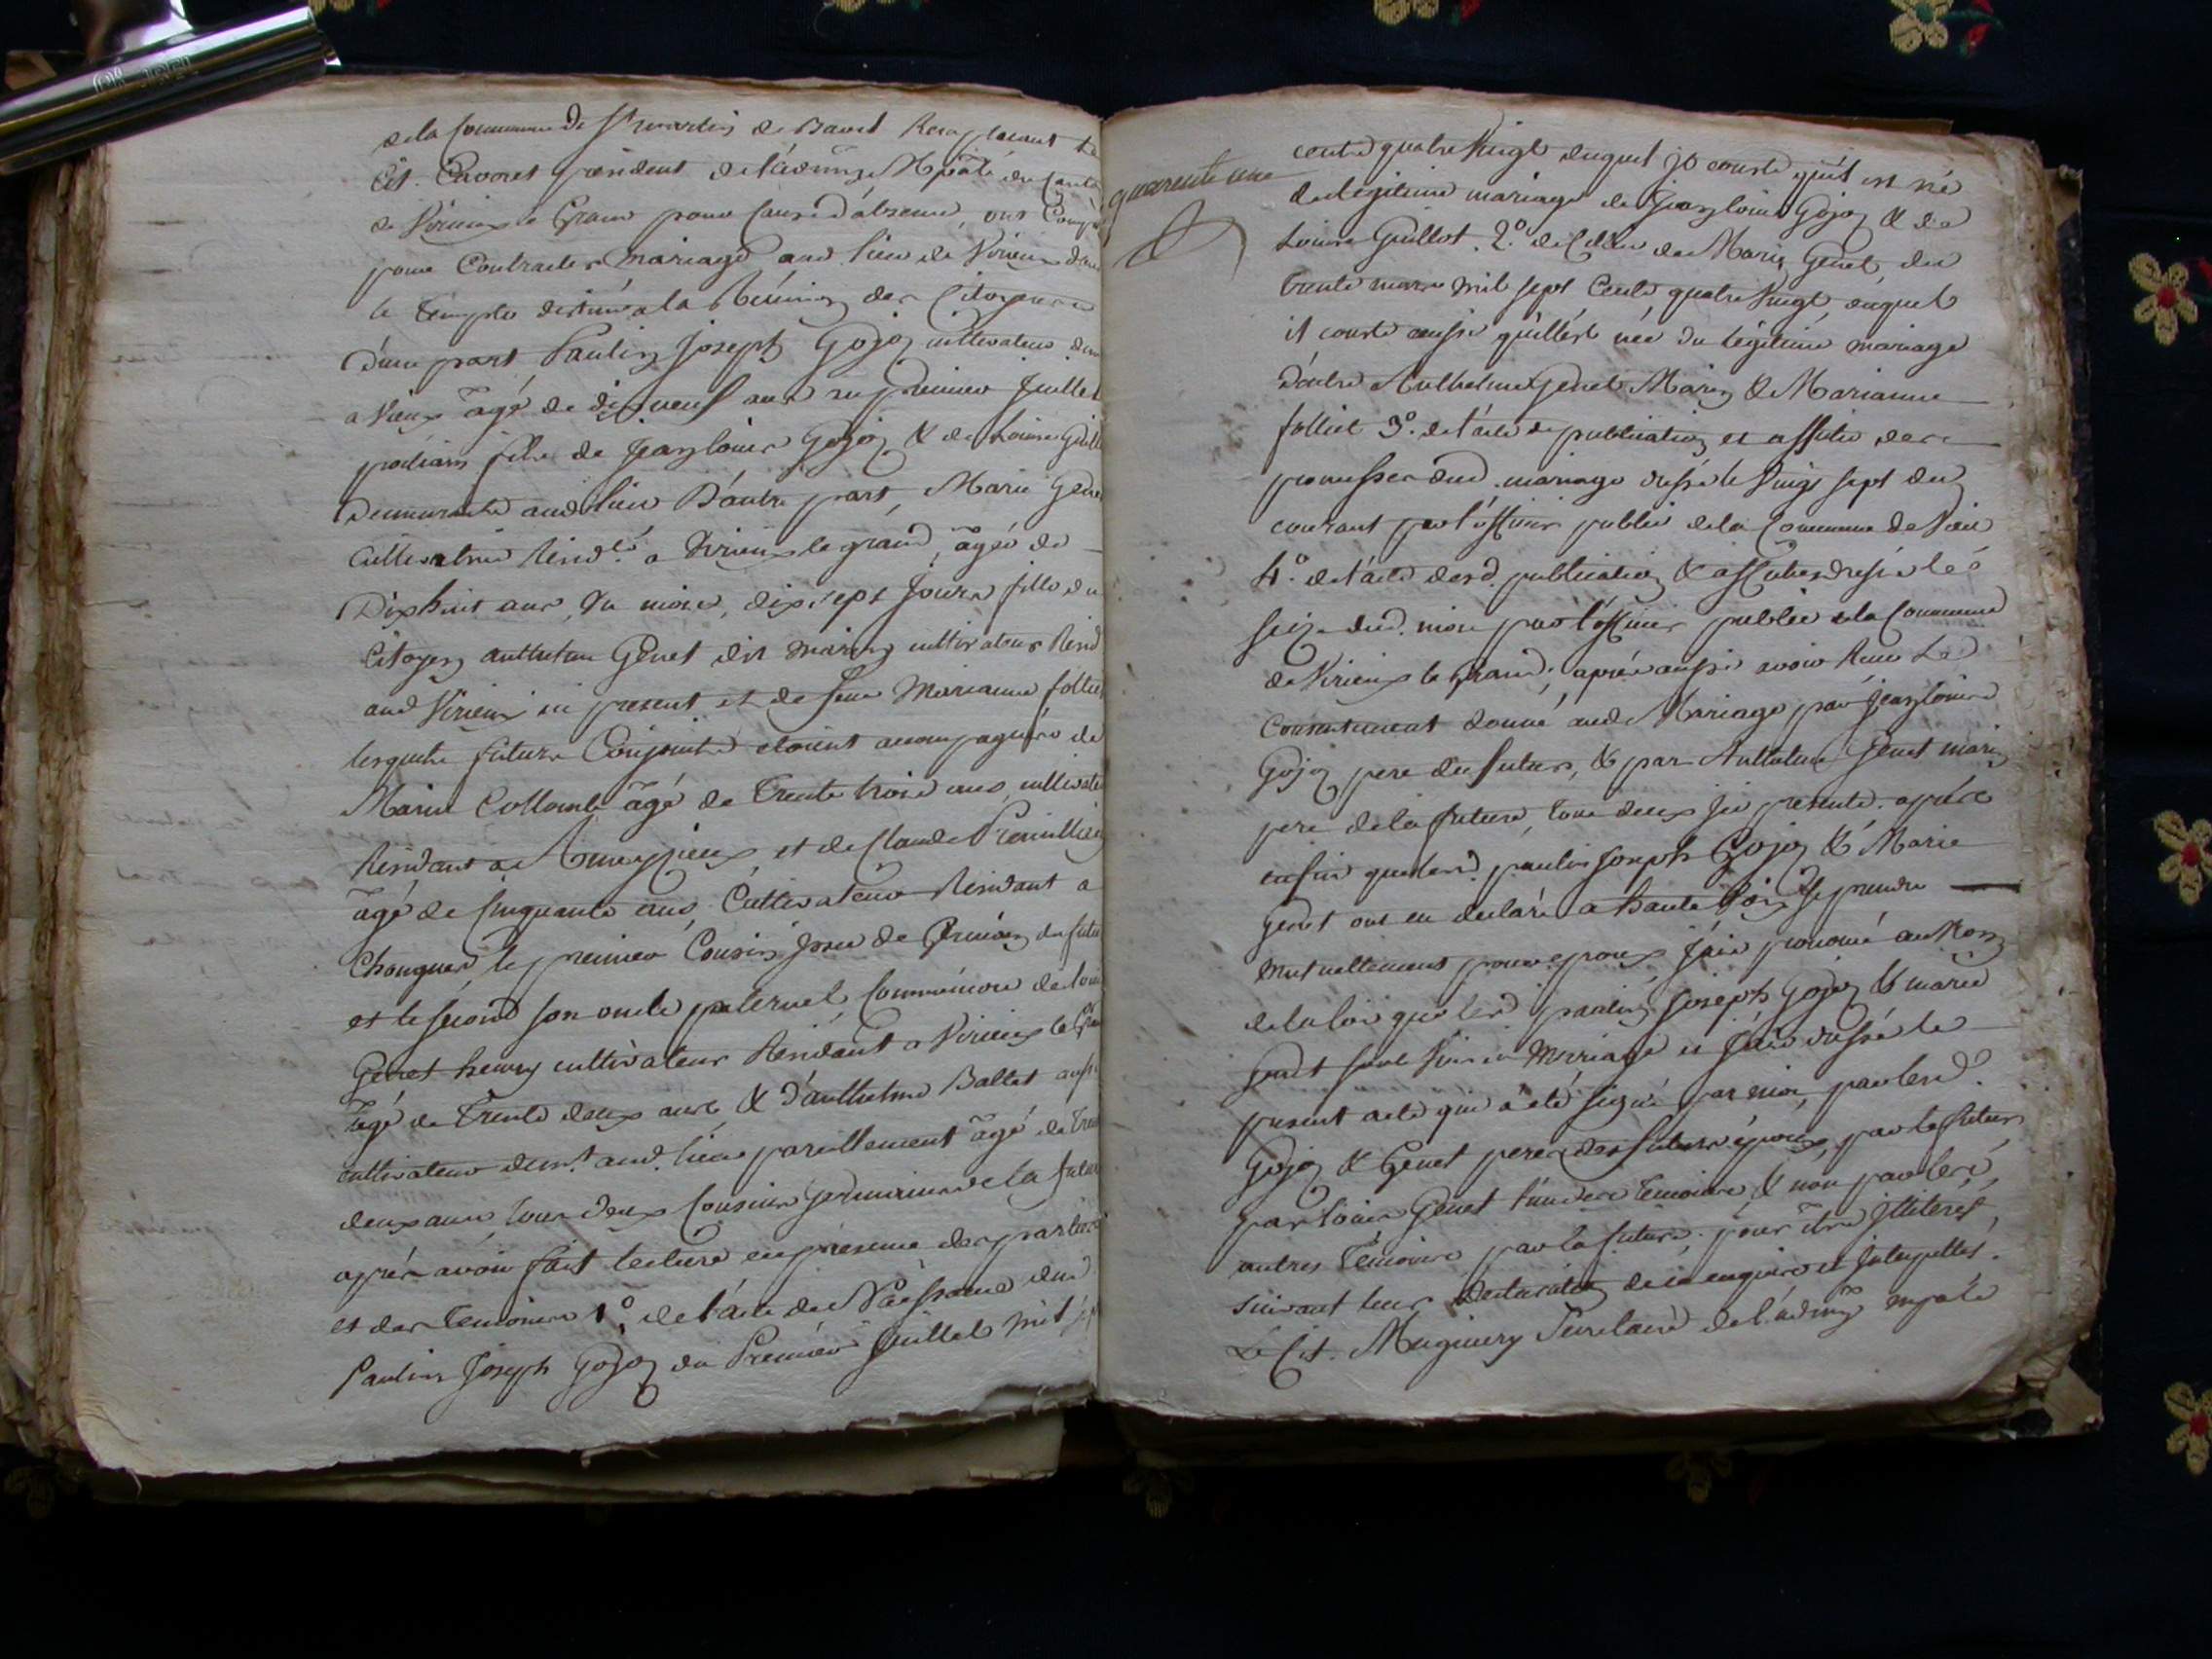 de la Commune de St martin de Bavel Remplacant le
Cit. Cavoret président de l'adming Mpale du Canto
de Virieux le Grand pour Cause d'absence, ont Comp
pour Contracter mariage aud. lieu de Virieux dans
le Temple destiné a la Réunion des Citoyens
d'une part Paulin Joseph Gojon cultivateur dem
a Vieux âgé de dixneuf ans au premier Juillet
prochain fils de Jean louis Gojon & de Louise Guill
demeurants aud lieu D'autre part, Marie Gene
Cultivatrice Resid.te a Virieux le grand, âgée de
Dixhuit ans, Un mois, dix sept Jours fille du
Citoyen anthelme Genet dit marin cultivateur Resid
aud Virieux ici present et de feue Marianne folliet
lesquels futurs Conjoints etoient accompagnés de
Marin Collomb âgé de Trente trois ans, cultivate
Résidant a Ameyzieux et de Claude
âgé de Cinquante ans Cultivateur Résidant a
le premier Cousin Issu de Germain du futur
et le second son oncle paternel, Comme encore de louis
Genet henry cultivateur Résidant a Virieux le Gran
âgé de Trente deux ans & d'anthelme Ballet aussi
cultivateur dem.t aud. lieu pareillement âgé de Tren
deux ans, tous deux Cousins germains de la future
après avoir fait lecture en présence des parties
et des Temoins 1.° de l'acte de Naissance dud
Paulin Joseph Gojon du Premier Juillet mil sep
quarente une
cents quatre Vingt duquel Il conste qu'il est né
du légitime mariage de Jean louis Gojon & de
Louise Guillot. 2.° de Celui de Marie Genet du
trente mars mil sept Cents quatre Vingt, duquel
il conste aussi qu'elle est née du légitime mariage
d'entre Anthelme Genet Marin & Marianne
folliet 3°. de l'acte de publication et affiche des
promesses dud. mariage dressé le Vingt sept du
courant par l'officier public de la Commune de Vieu
4.° de l'acte desd. publication & affiches dressé le
seize dud. mois par l'officier public de la Commune
de Virieux le Grand. après aussi avoir Recu Le
Consentement donné aud. Mariage par Jean louis
Gojon pere du futur, & par Anthelme Genet marin
pere de la future, tous deux Ici presents. après
enfin que lesd. paulin Joseph Gojon & Marie
Genet ont eu declaré a haute Voix se prendre
mutuellement pour epoux J'ai prononcé au Nom
de la loi que lesd paulin Joseph Gojon & marie
Genet sont Unis en Mariage et J'ai dressé le
present acte qui a été signé par moi, par lesd.
Gojon & Genet peres des futurs époux, par le futur
par louis Genet l'un des Temoins, & non par les
autres Témoins par la future. pour être Illiterés,
suivant leur declaration de ce enquis et Interpellés.
Le Cit. Muginery Secretaire de l'adming mpale